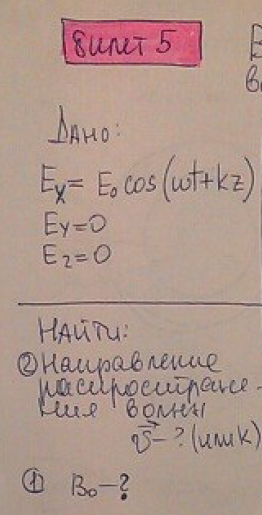 Билет 5
В
во
Дано:
Eₓ = E₀ cos(ωt+kz)
Ey=0
Ez=0
Найти:
② Направление
распростране-
ния волны
v⃗ - ? (или k)
① B₀ - ?